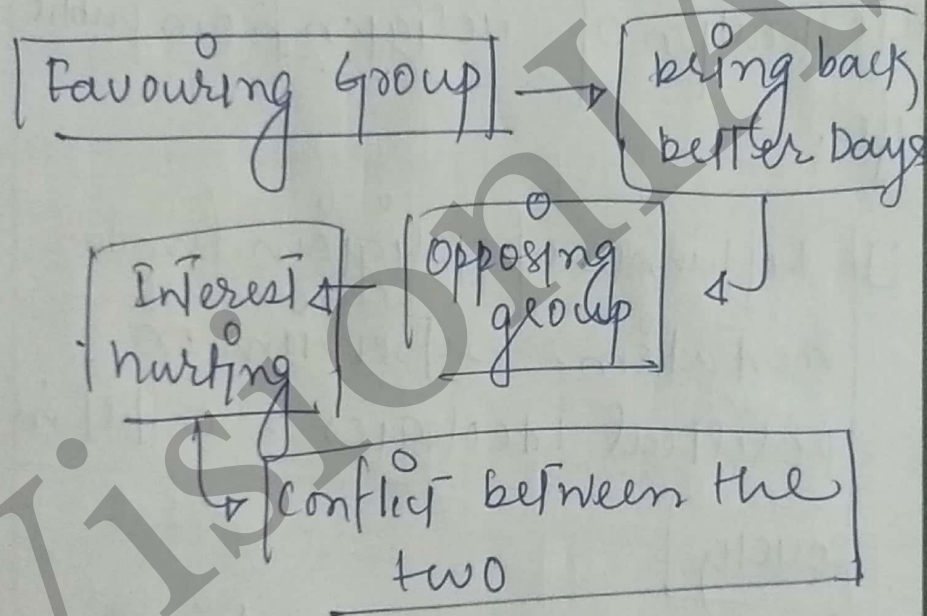 Favouring Group
bring back
better Days
Opposing
group
Interest
hurting
Conflict between the
two
VisionIA